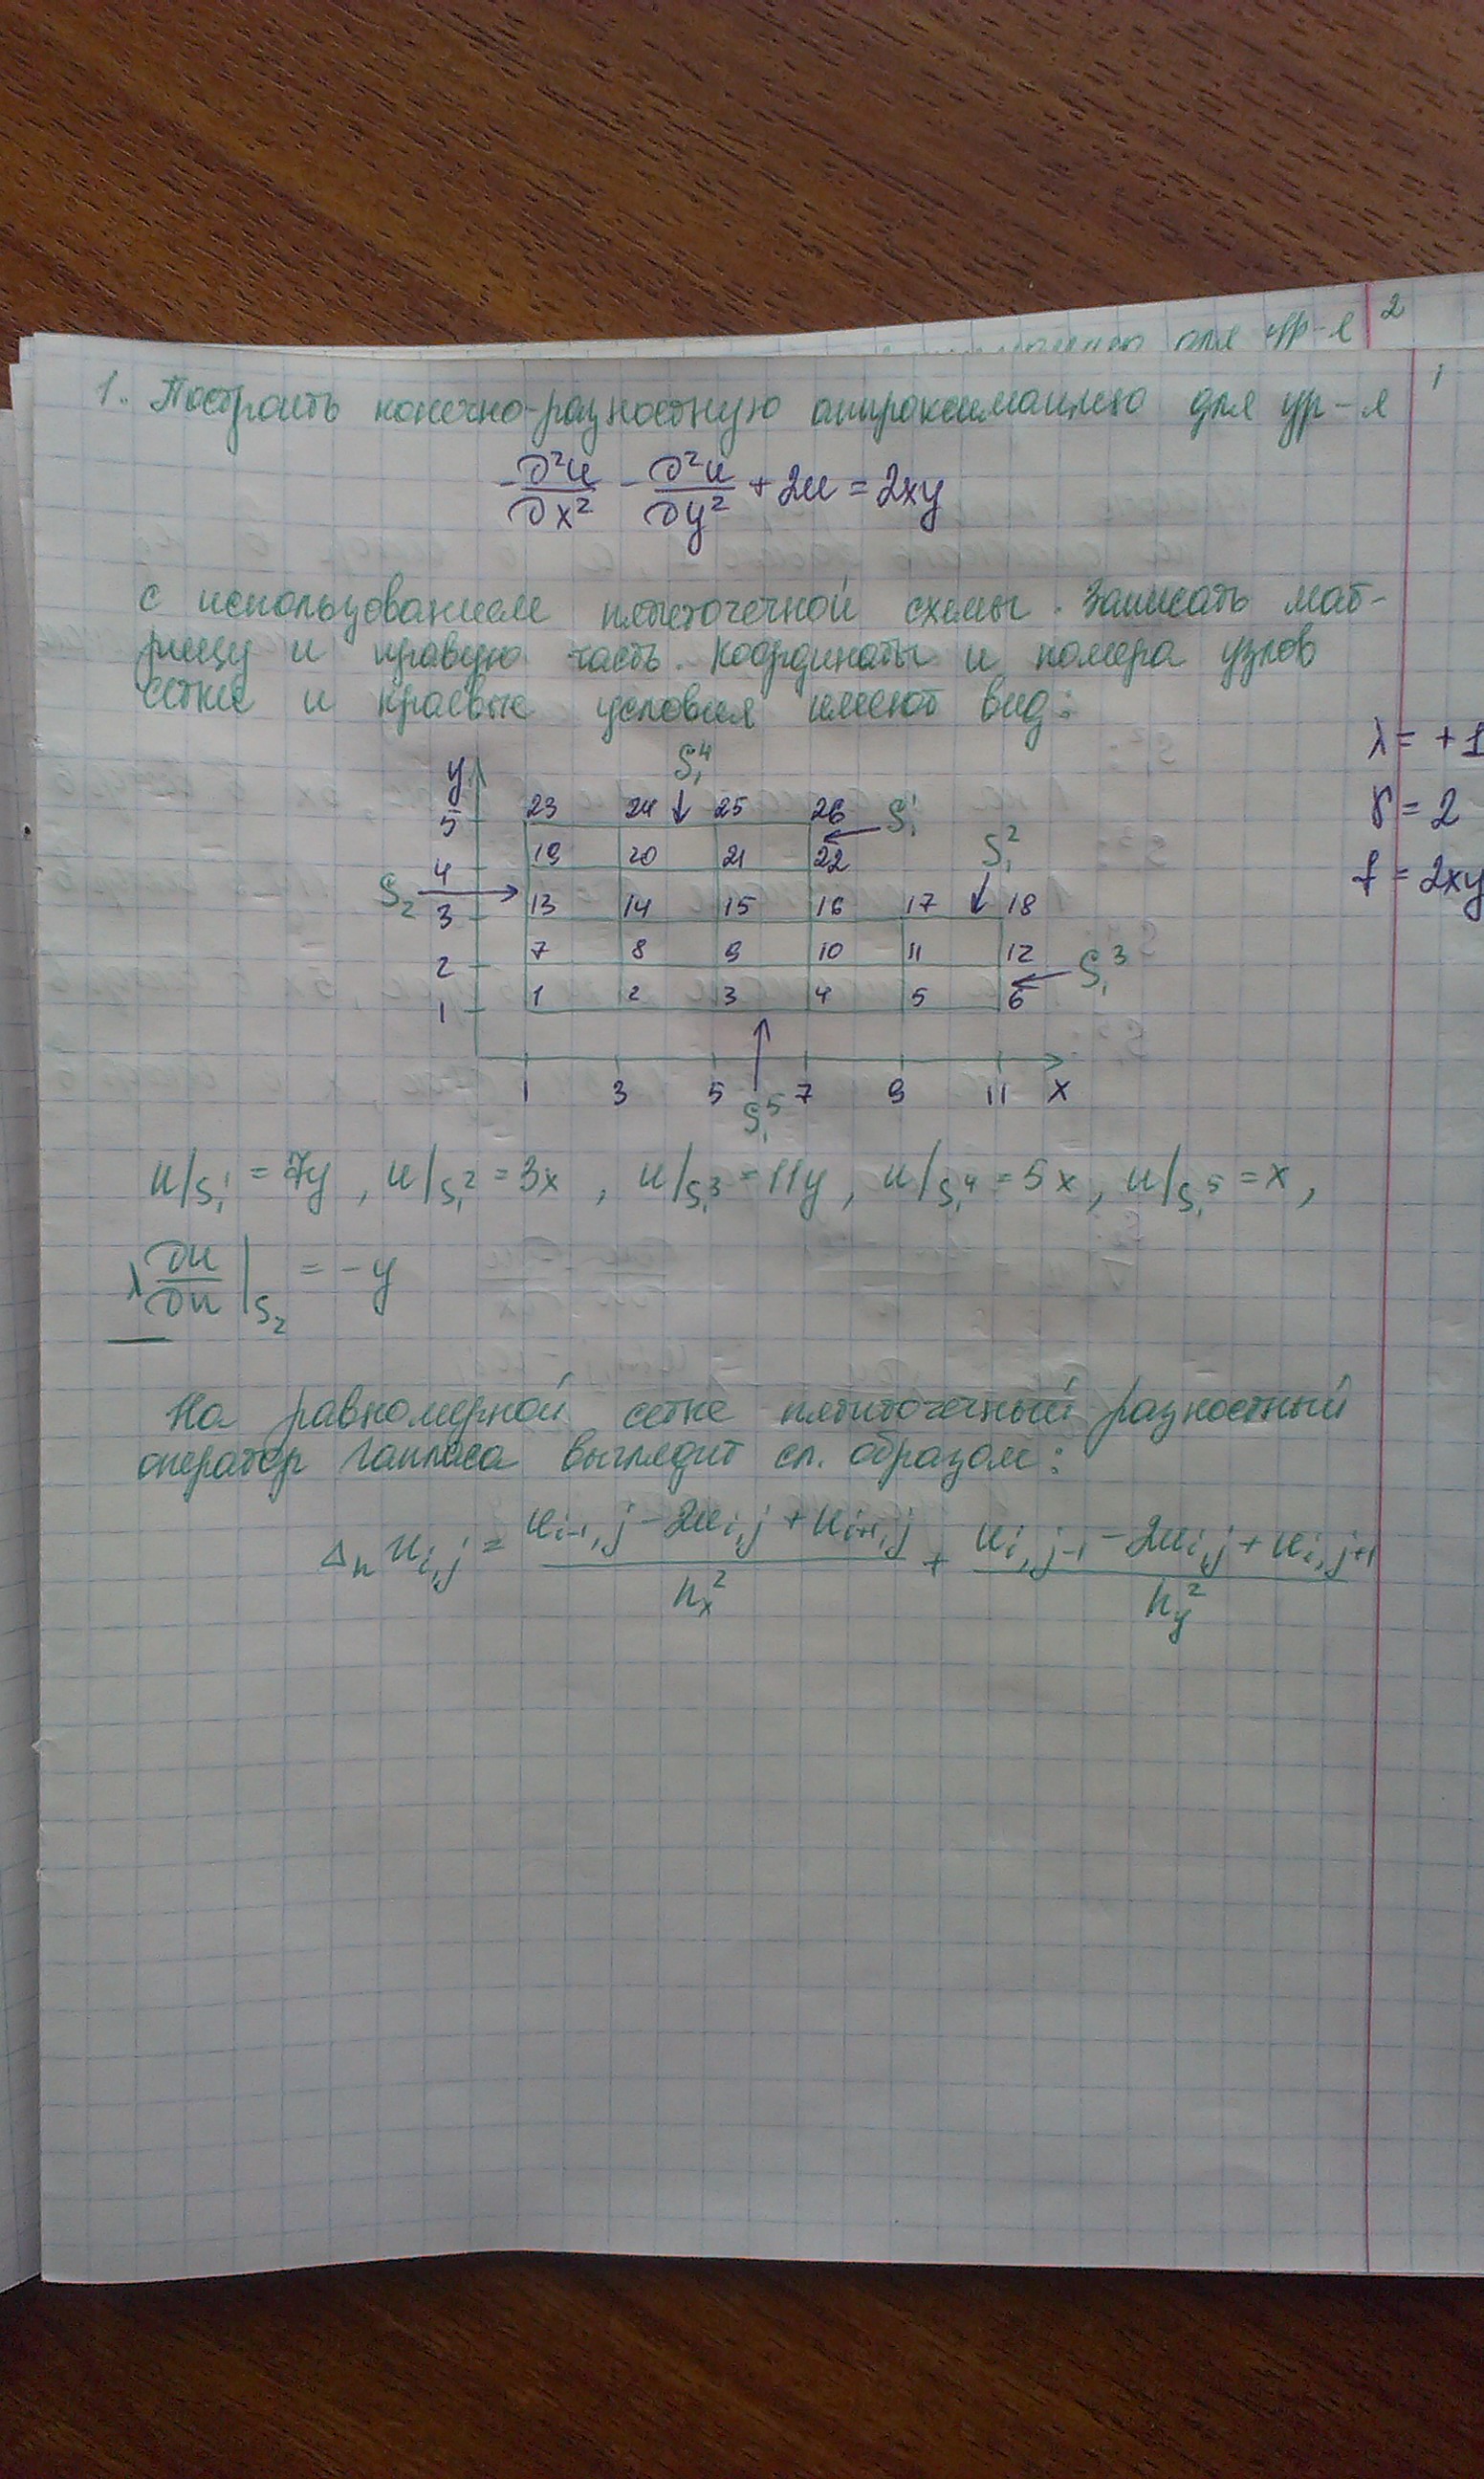 ур-я 2
1
1. Построить конечно-разностную аппроксимацию для ур-я
-∂²u/∂x² - ∂²u/∂y² + 2u = 2xy
с использованием пятиточечной схемы. Записать мат-
рицу и правую часть. Координаты и номера узлов
сетки и краевые условия имеют вид:
λ = +1
γ = 2
f = 2xy
y S₁⁴
5 23 24 25 26 S₁¹
4 19 20 21 22 S₁²
S₂ 3 13 14 15 16 17 18
2 7 8 9 10 11 12 S₁³
1 1 2 3 4 5 6
1 3 5 7 9 11 x
S₁⁵
u/S₁¹ = 7y, u/S₁² = 3x, u/S₁³ = 11y, u/S₁⁴ = 5x, u/S₁⁵ = x,
λ ∂u/∂n |S₂ = -y
На равномерной сетке пятиточечный разностный
оператор Лапласа выглядит сл. образом:
Δₕ uᵢ,ⱼ = (uᵢ₋₁,ⱼ - 2uᵢ,ⱼ + uᵢ₊₁,ⱼ)/hₓ² + (uᵢ,ⱼ₋₁ - 2uᵢ,ⱼ + uᵢ,ⱼ₊₁)/h_y²